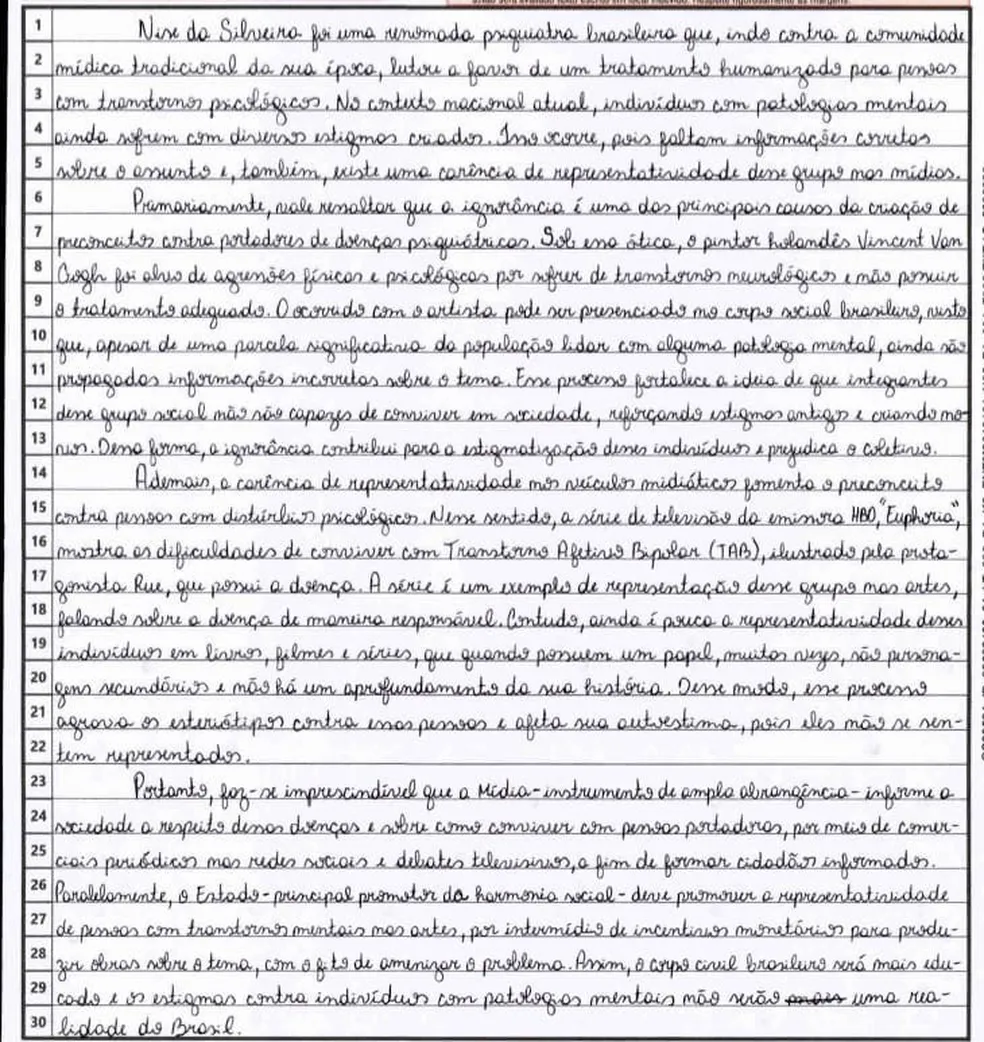 1 Nise da Silveira foi uma renomada psiquiatra brasileira que, indo contra a comunidade
2 médica tradicional da sua época, lutou a favor de um tratamento humanizado para pessoas
3 com transtornos psicológicos. No contexto nacional atual, indivíduos com patologias mentais
4 ainda sofrem com diversos estigmas criados. Isso ocorre, pois faltam informações corretas
5 sobre o assunto e, também, existe uma carência de representatividade desse grupo nas mídias.
6 Primariamente, vale ressaltar que a ignorância é uma das principais causas da criação de
7 preconceitos contra portadores de doenças psiquiátricas. Sob essa ótica, o pintor holandês Vincent Van
8 Gogh foi alvo de agressões físicas e psicológicas por sofrer de transtornos neurológicos e não possuir
9 o tratamento adequado. O ocorrido com o artista pode ser presenciado no corpo social brasileiro, visto
10 que, apesar de uma parcela significativa da população lidar com alguma patologia mental, ainda são
11 propagadas informações incorretas sobre o tema. Esse processo fortalece a ideia de que integrantes
12 desse grupo social não são capazes de conviver em sociedade, reforçando estigmas antigos e criando no-
13 vos. Dessa forma, a ignorância contribui para a estigmatização desses indivíduos e prejudica o coletivo.
14 Ademais, a carência de representatividade nos veículos midiáticos fomenta o preconceito
15 contra pessoas com distúrbios psicológicos. Nesse sentido, a série de televisão da emissora HBO, "Euphoria",
16 mostra as dificuldades de conviver com Transtorno Afetivo Bipolar (TAB), ilustrado pela prota-
17 gonista Rue, que possui a doença. A série é um exemplo de representação desse grupo nas artes,
18 falando sobre a doença de maneira responsável. Contudo, ainda é pouca a representatividade desses
19 indivíduos em livros, filmes e séries, que quando possuem um papel, muitas vezes, são persona-
20 gens secundários e não há um aprofundamento da sua história. Desse modo, esse processo
21 agrava os esteriótipos contra essas pessoas e afeta sua autoestima, pois eles não se sen-
22 tem representados.
23 Portanto, faz-se imprescindível que a Mídia - instrumento de ampla abrangência - informe a
24 sociedade a respeito dessas doenças e sobre como conviver com pessoas portadoras, por meio de comer-
25 ciais periódicos nas redes sociais e debates televisivos, a fim de formar cidadãos informados.
26 Paralelamente, o Estado - principal promotor da harmonia social - deve promover a representatividade
27 de pessoas com transtornos mentais nas artes, por intermédio de incentivos monetários para produ-
28 zir obras sobre o tema, com o fito de amenizar o problema. Assim, o corpo civil brasileiro será mais edu-
29 cado e os estigmas contra indivíduos com patologias mentais não serão mais uma rea-
30 lidade do Brasil.